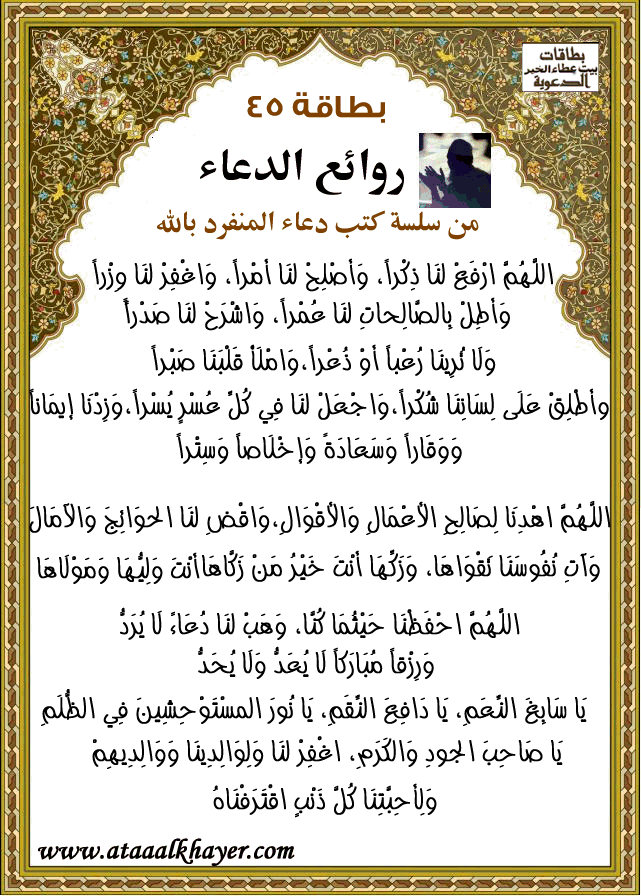 بطاقات
بيت عطاء الخير
الدعوية
بطاقة ٤٥
روائع الدعاء
من سلسة كتب دعاء المنفرد بالله
اللَّهُمَّ ارْفَعْ لنَا ذِكْراً، وَأَصْلِحْ لنَا أمْراً، وَاغْفِرْ لنَا وِزْراً
وَأطِلْ بِالصَّالِحاتِ لنَا عُمْراً، وَاشْرَحْ لنَا صَدْراً
وَلَا تُرِينَا رُعْباً أوْ ذُعْراً،وَامْلَأ قَلْبَنَا صَبْراً
وأطْلِقْ عَلَى لِسَانِنَا شُكْراً،وَاجْعَلْ لنَا فِي كُلِّ عُسْرٍ يُسْراً،وَزِدْنَا إيمَاناً
وَوَقَاراً وَسَعَادَةً وَإخْلَاصاً وَسِتْراً
اللَّهُمَّ اهْدِنَا لِصَالِحِ الأعْمَالِ وَالأقْوَالِ،وَاقْضِ لنَا الحوَائِجَ وَالآمَالَ
وَآتِ نُفُوسَنَا تَقْوَاهَا، وَزَكِّهَا أنْتَ خَيْرُ مَنْ زَكَّاهَا أنْتَ وَلِيُّهَا وَمَوْلَاهَا
اللَّهُمَّ احْفَظْنَا حَيْثُمَا كُنَّا، وَهَبْ لنَا دُعَاءً لَا يُرَدُّ
وَرِزْقاً مُبَارَكاً لَا يُعَدُّ وَلَا يُحَدُّ
يَا سَابِغَ النِّعَمِ، يَا دَافِعَ النِّقَمِ، يَا نُورَ المسْتَوْحِشِينَ فِي الظُّلَمِ
يَا صَاحِبَ الجودِ وَالكَرَمِ، اغْفِرْ لنَا وَلِوَالِدِينَا وَوَالِدِيهِمْ
وَلِأحِبَّتِنَا كُلَّ ذَنْبٍ اقْتَرَفْنَاهُ
www.ataaalkhayer.com